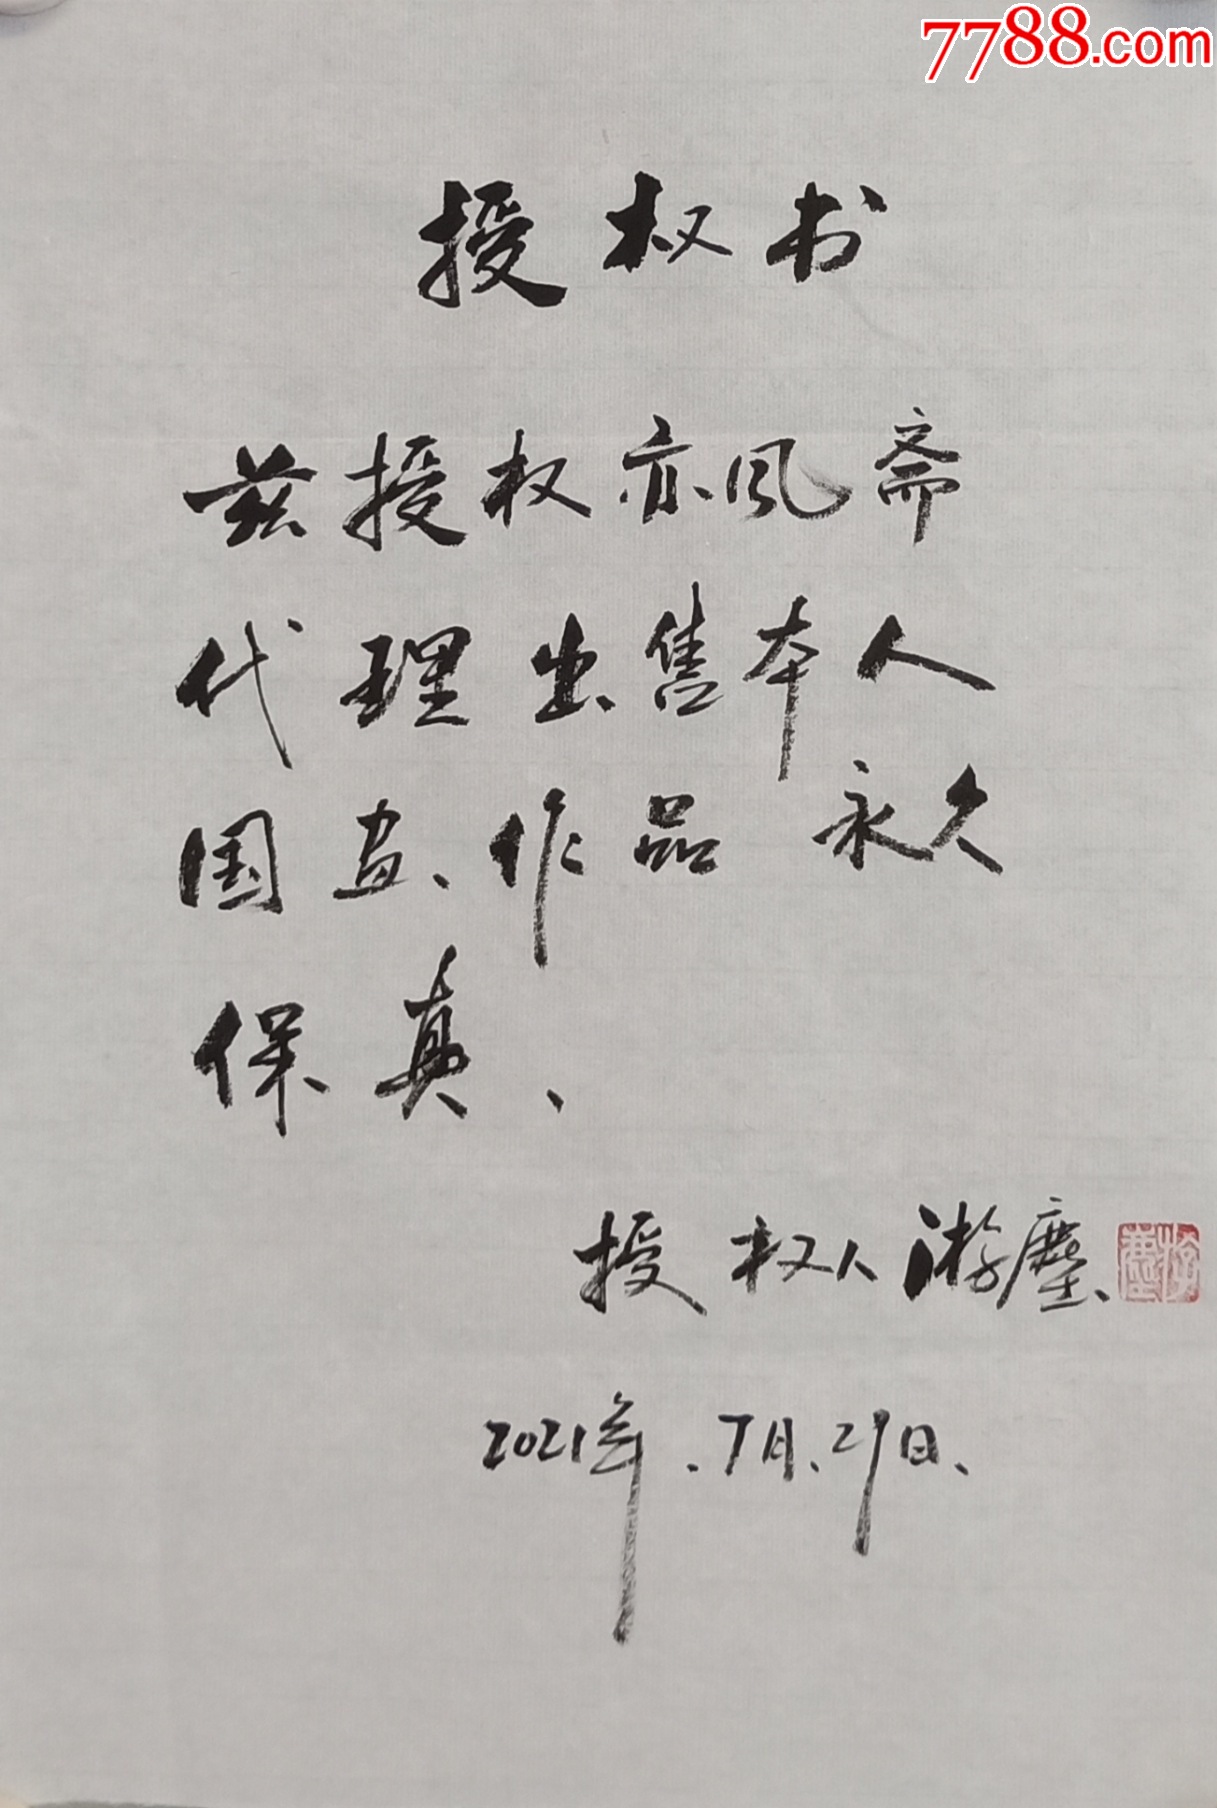 7788.com
授权书
兹授权亦风斋
代理出售本人
国画、作品 永久
保真、
授权人游塵、
2021年.7月、29日、